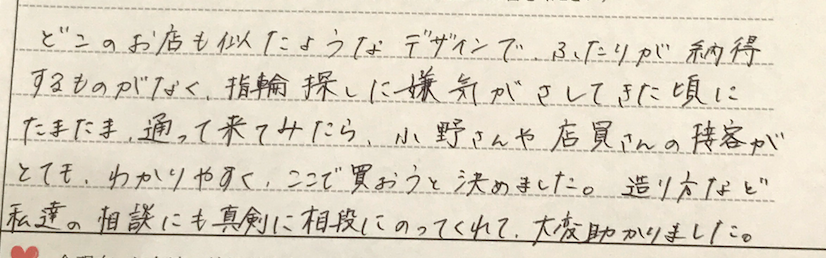 どこのお店も似たようなデザインで、ふたりが納得
するものがなく、指輪探しに嫌気がさしてきた頃に
たまたま、通って来てみたら、小野さんや店員さんの接客が
とても、わかりやすく、ここで買おうと決めました。造り方など
私達の相談にも真剣に相段にのってくれて、大変助かりました。